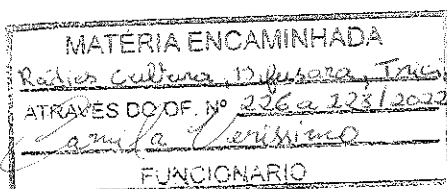 MATÉRIA ENCAMINHADA
Rádios Cultura, Difusora,
ATRAVÉS DO OF. Nº 226 a 228/2022
Camila Verissimo
FUNCIONARIO